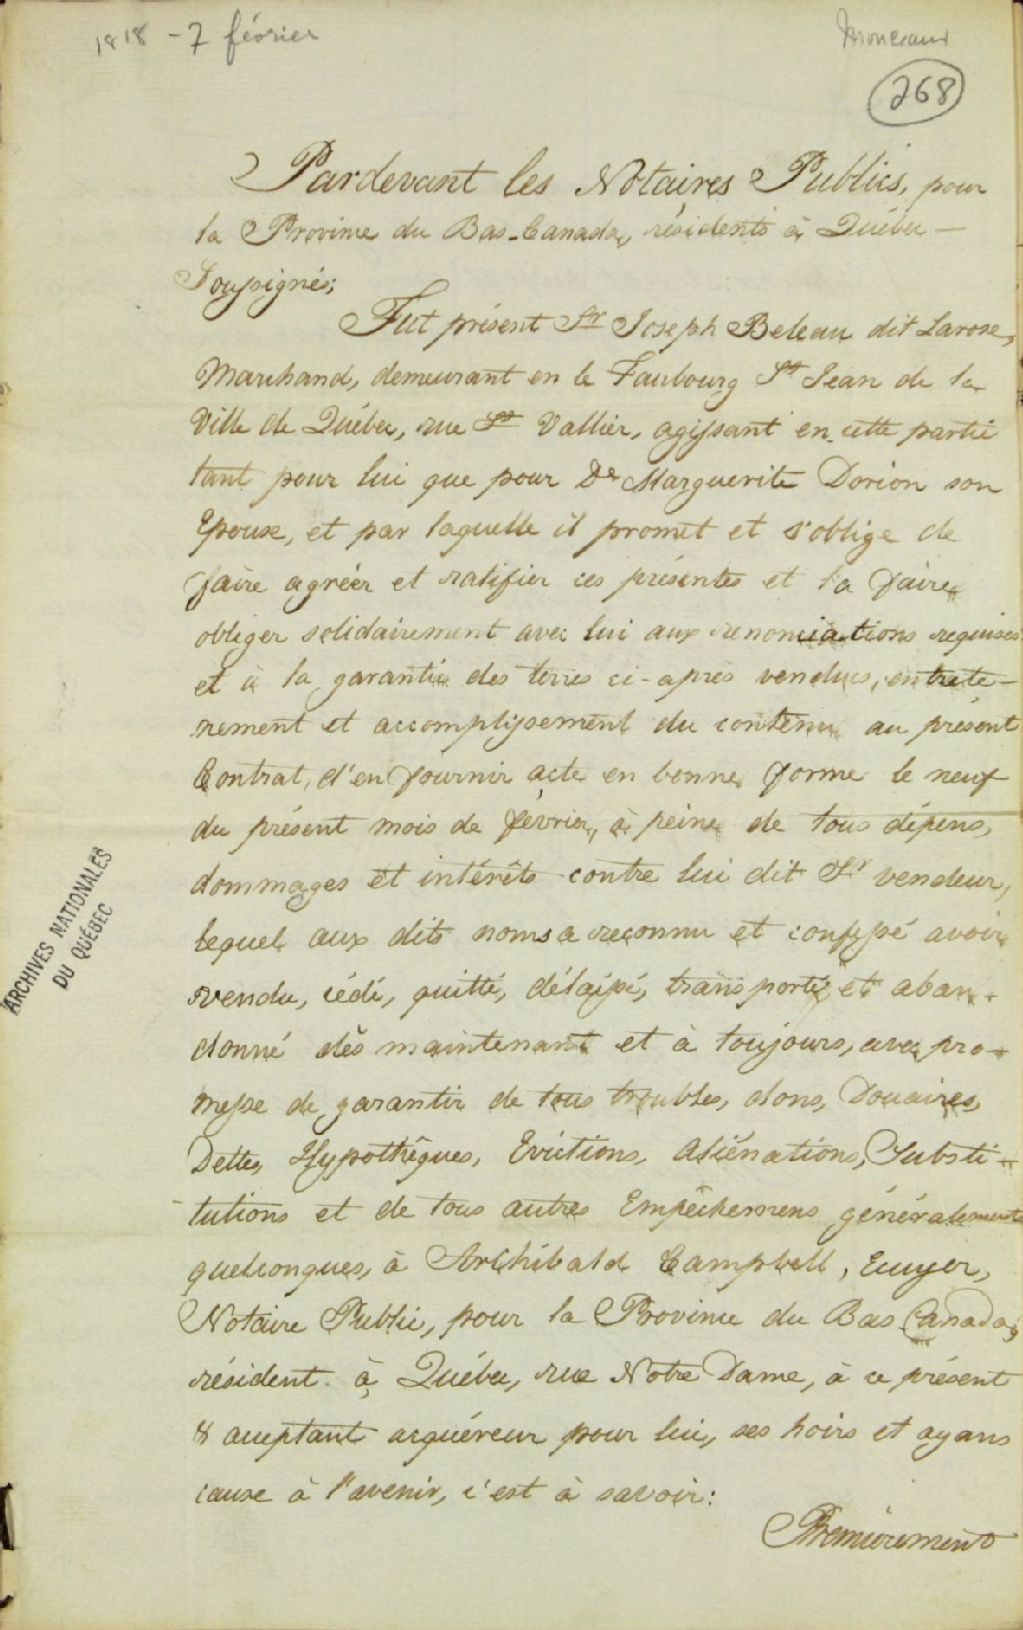 1818 - 7 février
Monceaux
268
Pardevant les Notaires Publics, pour
la Province du Bas-Canada, résidents à Québec —
Soussignés;
Fut présent Sr Joseph Beleau dit Larose,
Marchand, demeurant en le Faubourg St Jean de la
Ville de Québec, rue St Vallier, agissant en cette partie
tant pour lui que pour De Marguerite Dorion son
Epouse, et par laquelle il promet et s'oblige de
faire agréer et ratifier ces présentes et la faire
obliger solidairement avec lui aux renonciations requises
et à la garantie des terres ci-après vendues, entrete-
nement et accomplissement du contenu au présent
Contrat, d'en fournir acte en bonne forme le neuf
du présent mois de février, à peine de tous dépens,
dommages et intérêts contre lui dit Sr vendeur,
lequel aux dits noms a reconnu et confessé avoir
vendu, cédé, quitté, délaissé, transporté et aban-
donné dès maintenant et à toujours, avec pro-
messe de garantir de tous troubles, dons, Douaires,
Dettes, Hypothèques, Evictions, Aliénations, Substi-
tutions et de tous autres Empêchemens généralement
quelconques, à Archibald Campbell, Ecuyer,
Notaire Public, pour la Province du Bas Canada,
résident à Québec, rue Notre Dame, à ce présent
& acceptant acquéreur pour lui, ses hoirs et ayans
cause à l'avenir, c'est à savoir:
Premièrement
ARCHIVES NATIONALES
DU QUÉBEC